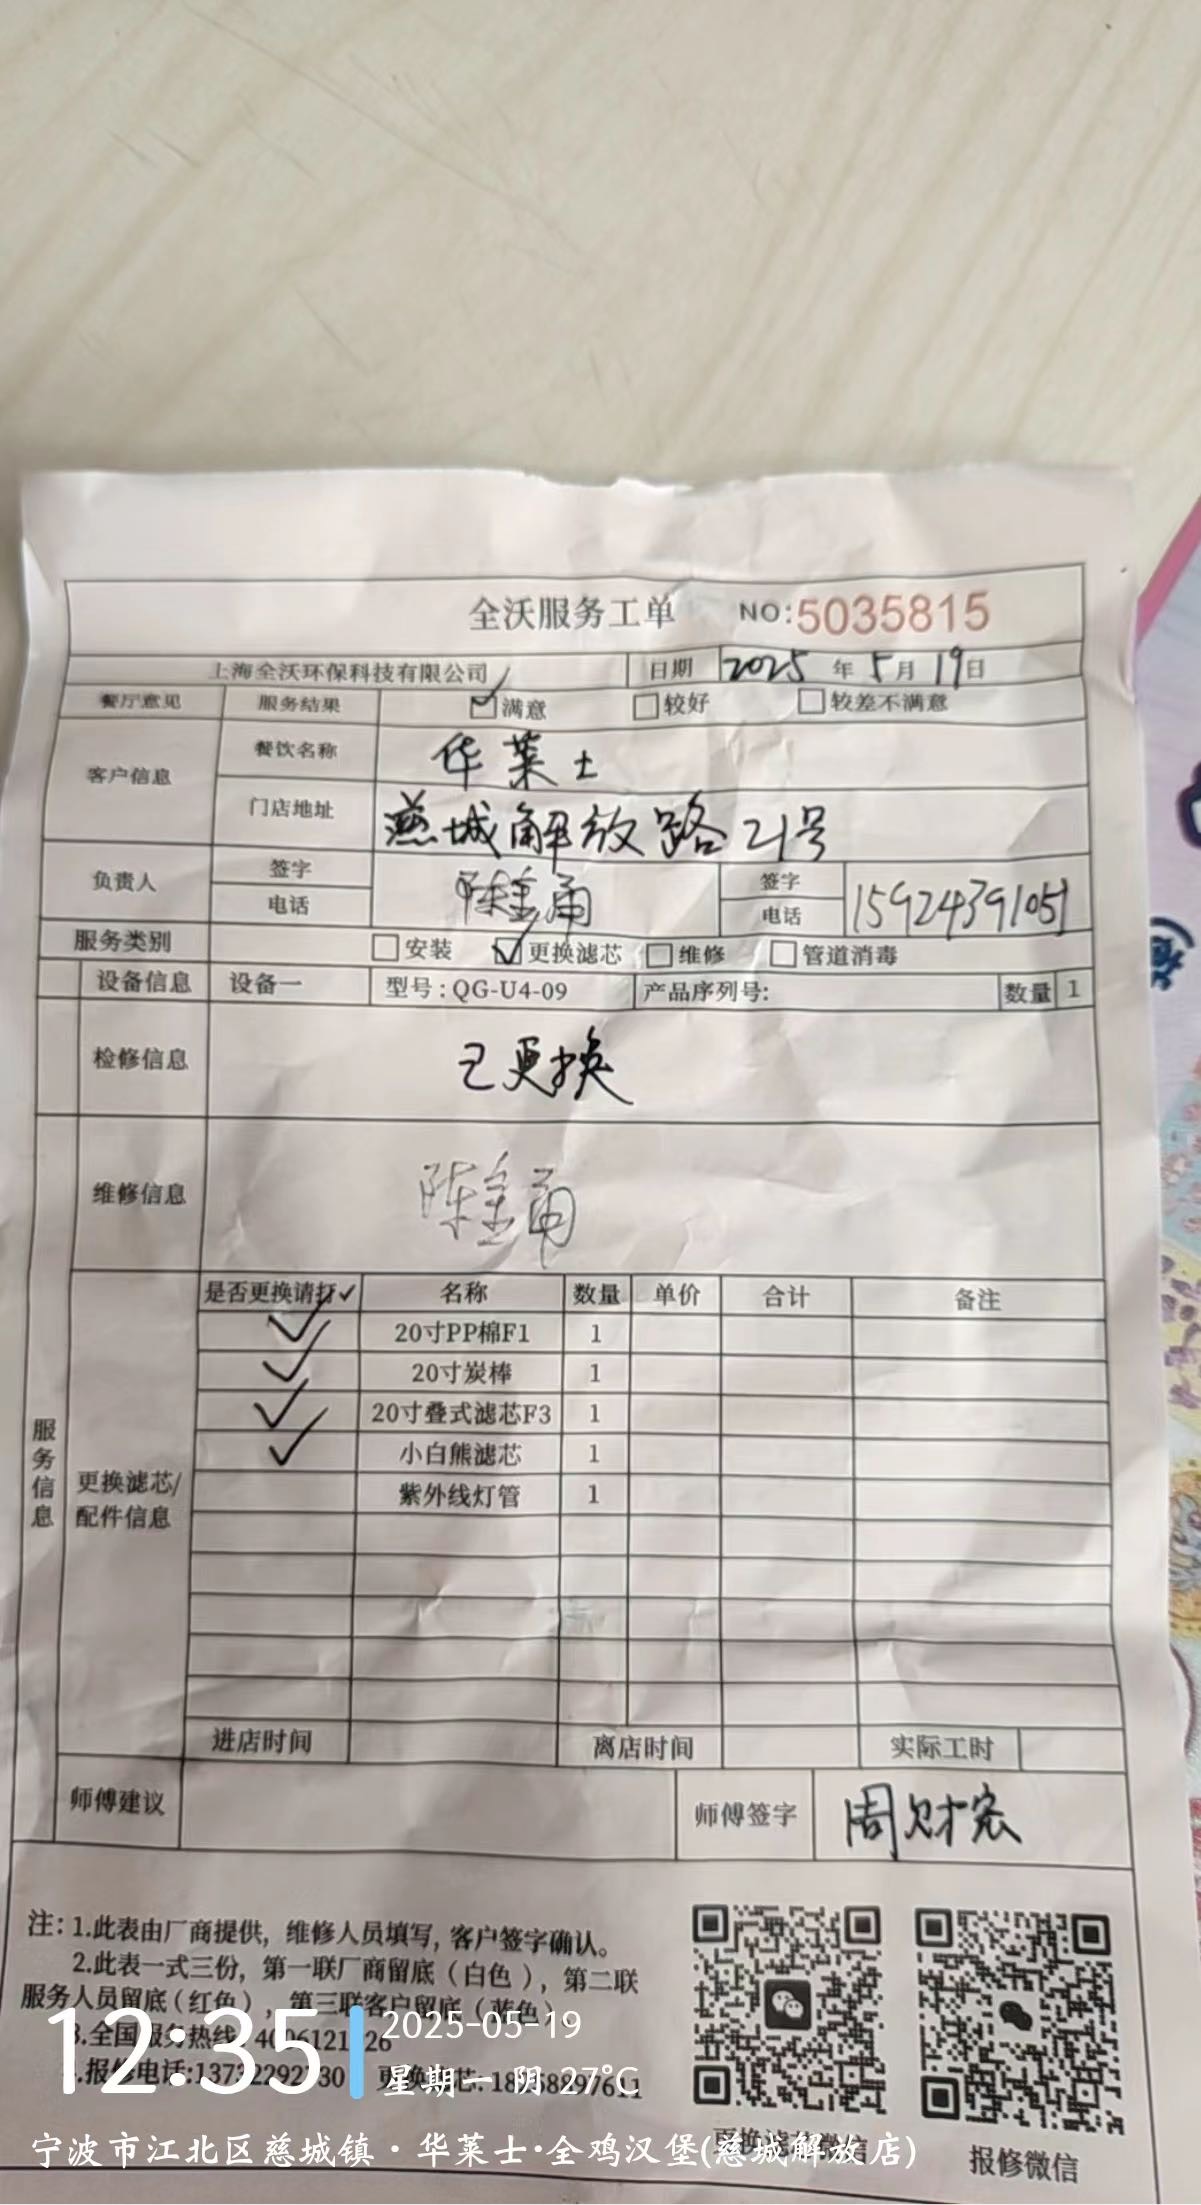 全沃服务工单 NO:5035815
上海全沃环保科技有限公司 日期 2025 年 5 月 19 日
餐厅意见 服务结果 满意 较好 较差不满意
客户信息 餐饮名称 华莱士
门店地址 慈城解放路21号
负责人 签字 签字
电话 电话 15924391051
服务类别 安装 ✓更换滤芯 维修 管道消毒
设备信息 设备一 型号:QG-U4-09 产品序列号: 数量 1
检修信息 已更换
维修信息
服务信息
更换滤芯/
配件信息
是否更换请打✓ 名称 数量 单价 合计 备注
✓ 20寸PP棉F1 1
✓ 20寸炭棒 1
✓ 20寸叠式滤芯F3 1
✓ 小白熊滤芯 1
紫外线灯管 1
进店时间 离店时间 实际工时
师傅建议 师傅签字 周财宏
注:1.此表由厂商提供,维修人员填写,客户签字确认。
2.此表一式三份,第一联厂商留底(白色),第二联
服务人员留底(红色),第三联客户留底(蓝色)。
3.全国服务热线
报修电话:
报修微信
12:35
2025-05-19
星期一 阴 27℃
宁波市江北区慈城镇·华莱士·全鸡汉堡(慈城解放店)